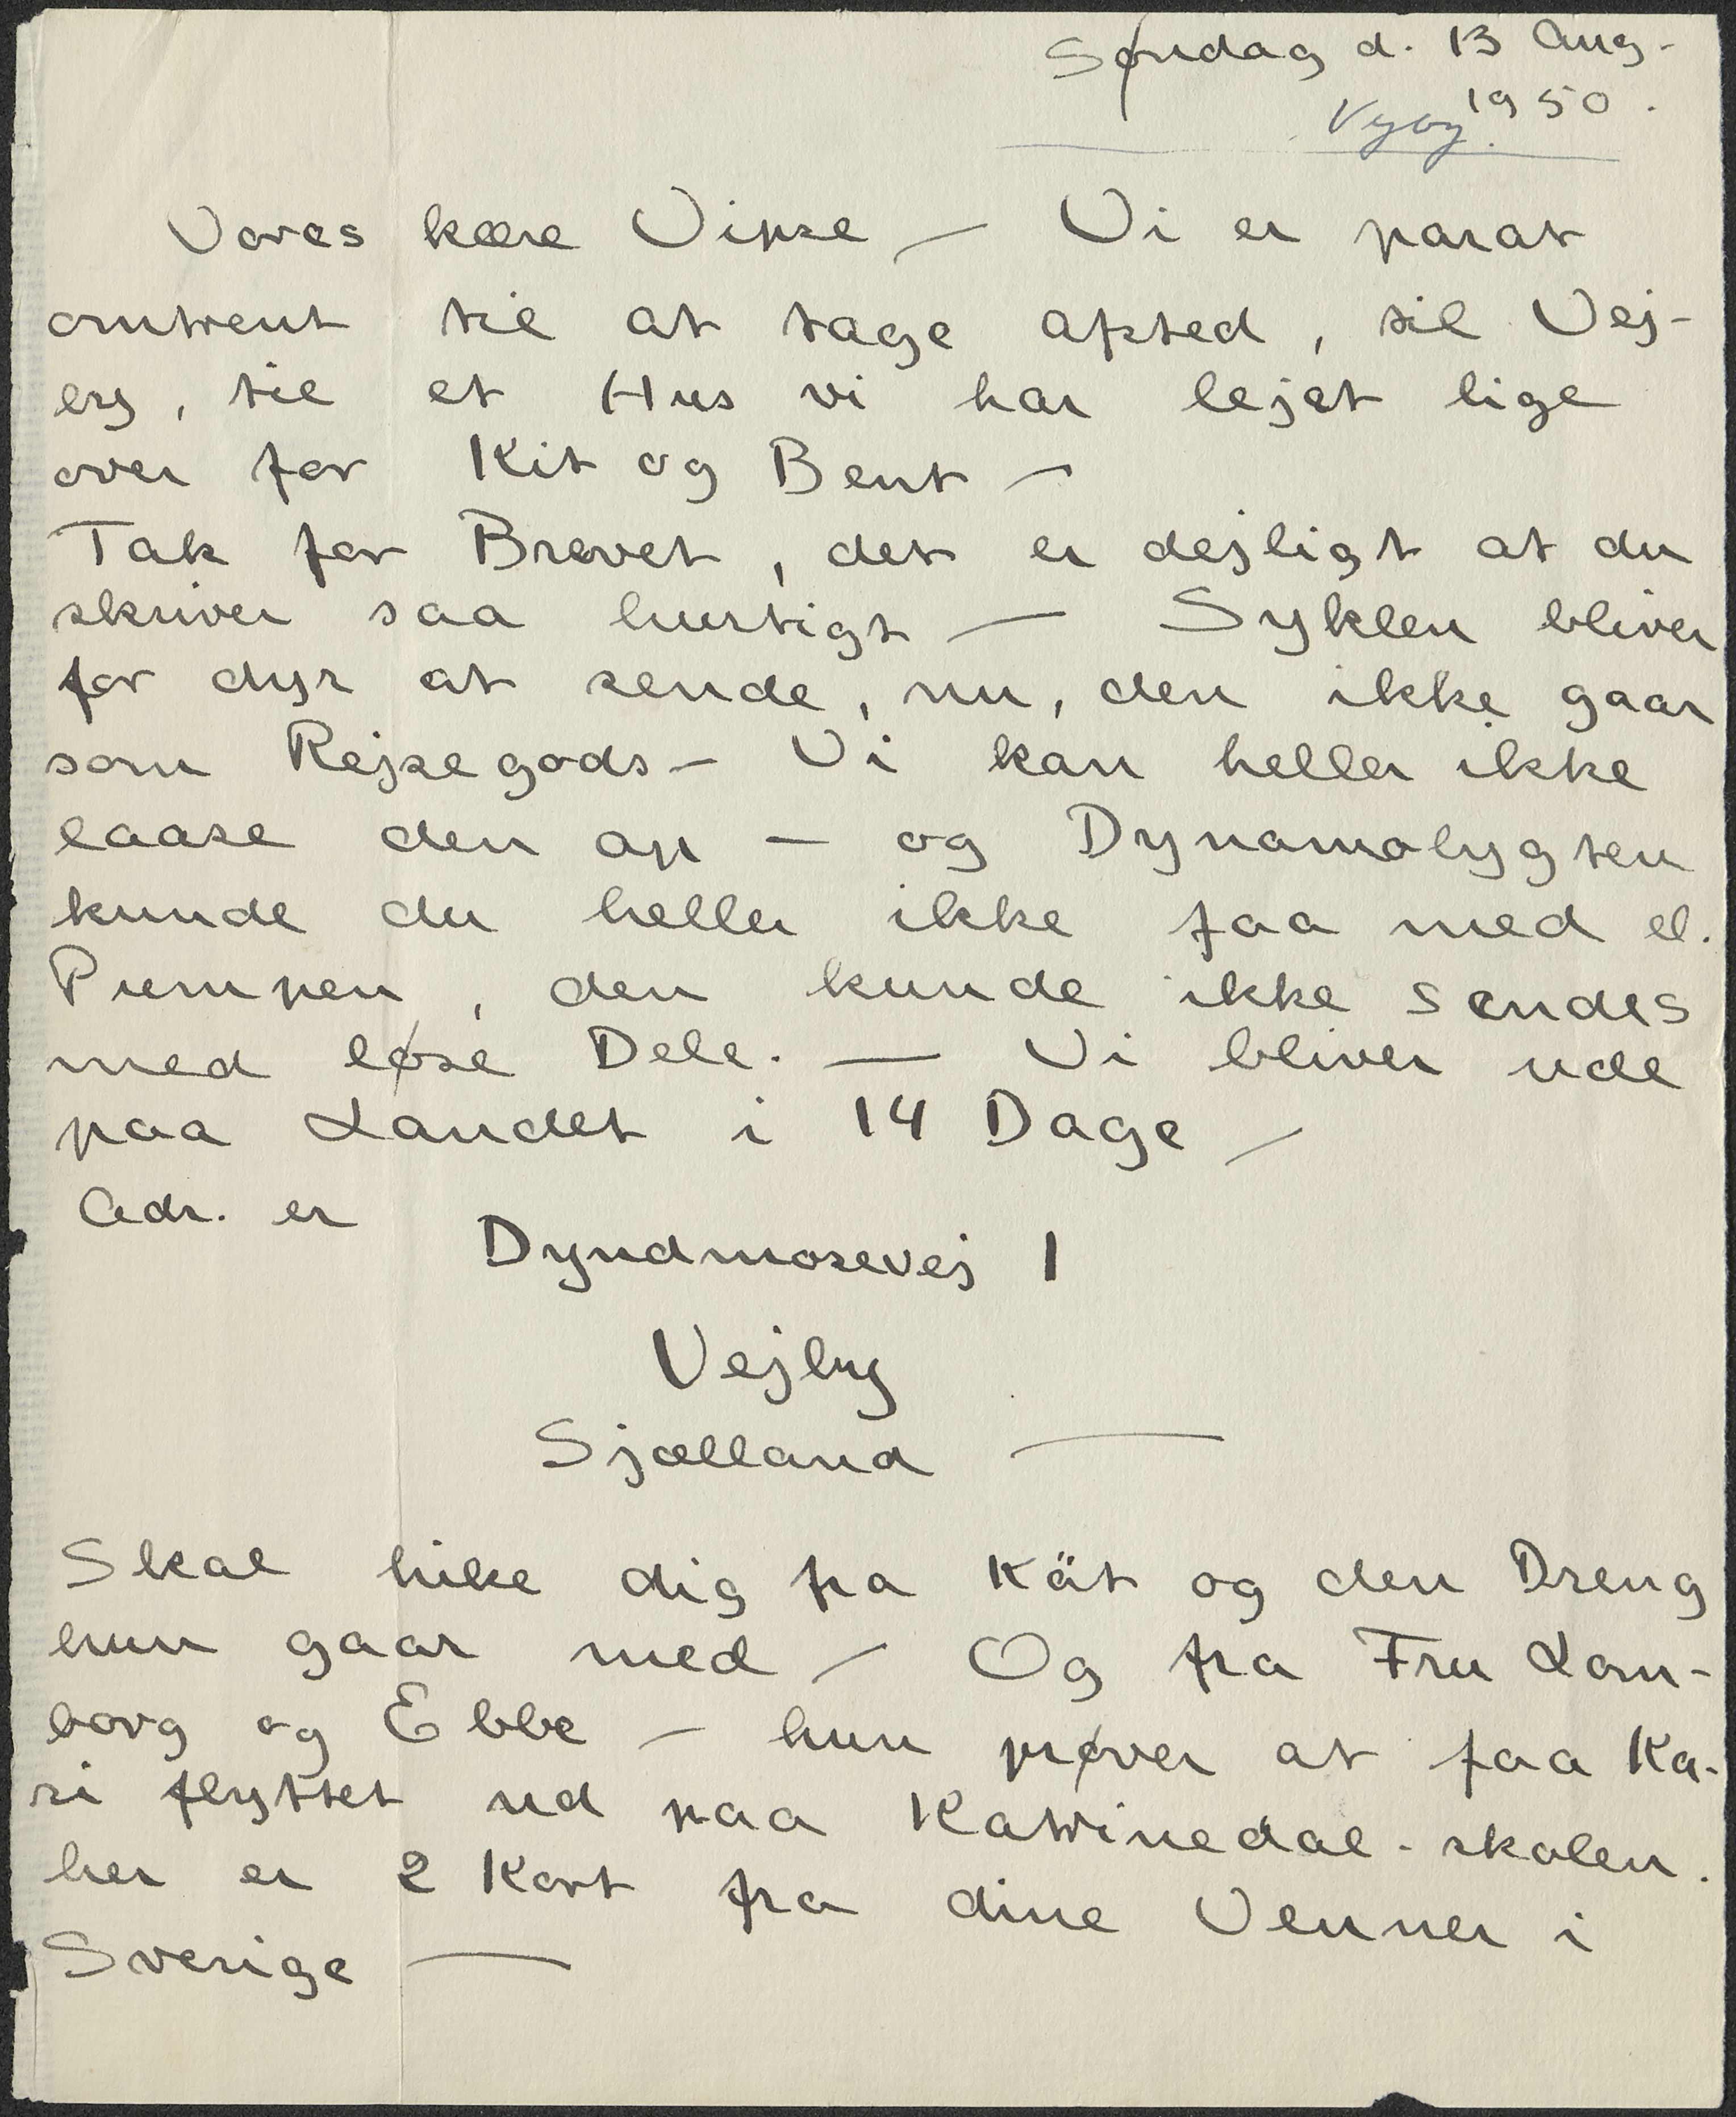 Søndag d. 13 Aug-
1950.
Vyby.
Vores kære Vipse — Vi er parat
omtrent til at tage afsted, til Vej-
by, til et Hus vi har lejet lige
over for Kit og Bent —
Tak for Brevet, det er dejligt at du
skriver saa hurtigt — Syklen bliver
for dyr at sende, nu, den ikke gaar
som Rejsegods — Vi kan heller ikke
laase den op — og Dynamolygten
kunde du heller ikke faa med el.
Pumpen, den kunde ikke sendes
med løse Dele. — Vi bliver ude
paa Landet i 14 Dage —
Adr. er
Dyndmosevej 1
Vejby
Sjælland —
Skal hilse dig fra Kät og den Dreng
hun gaar med — Og fra Fru Lom-
borg og Ebbe — hun prøver at faa Ka-
ri flyttet ud paa Katrinedal-skolen.
her er 2 Kort fra dine Venner i
Sverige —